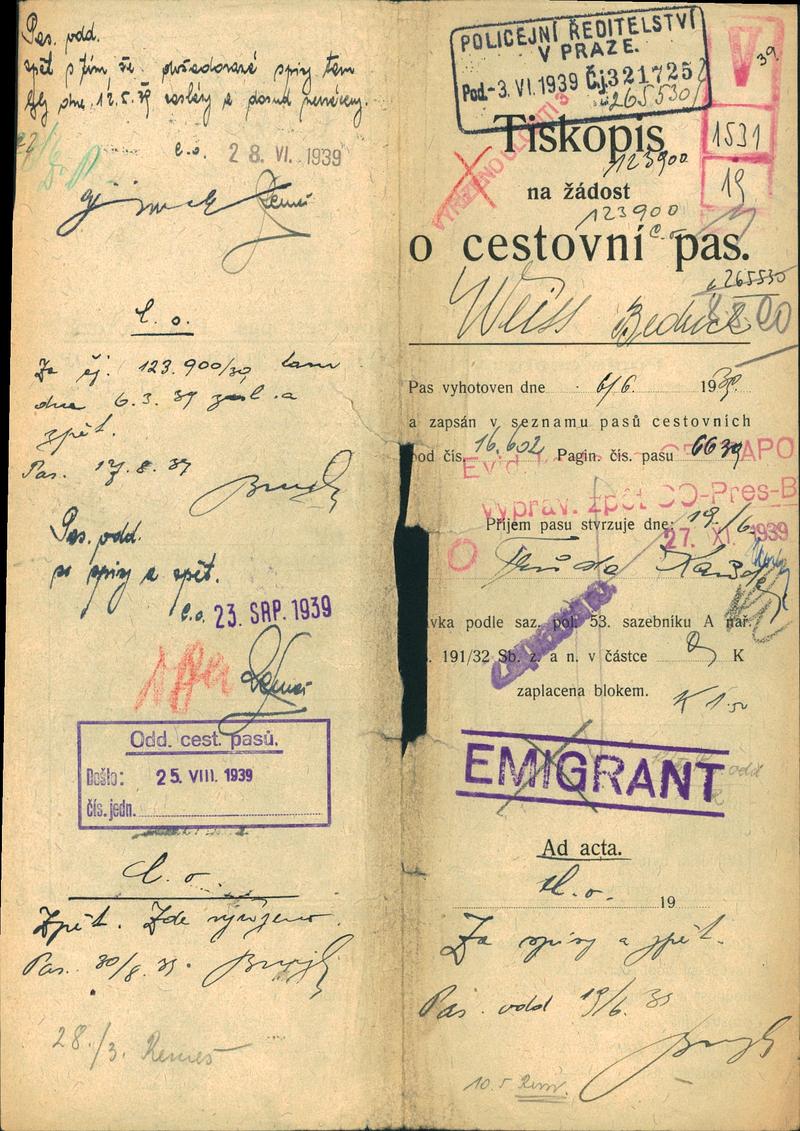 Pas. odd.
zpět s tím, že
dne 12.5.39 a dosud
č.o. 28. VI. 1939
č. o.
Za čj. 123.900/39 tam
dne 6.3.39 a
zpět.
Pas. 17.8.39
Pas. odd.
se spisy a zpět.
č.o. 23. SRP. 1939
Odd. cest. pasů.
Došlo: 25. VIII. 1939
čís. jedn.
č. o.
Zpět. Zde vyřízeno.
Pas. 30/8.39.
28./3. Remeš
POLICEJNÍ ŘEDITELSTVÍ
V PRAZE.
Pod. -3. VI. 1939 Čj. 321725
265530
V 39.
1531
19
Tiskopis
123900
na žádost
123900
o cestovní pas.
č. 265530
Weiss Bedřich
Pas vyhotoven dne 6/6. 1939.
a zapsán v seznamu pasů cestovních
pod čís. 16.602 Pagin. čís. pasu 6639
GESTAPO
vyprav. zpět CO-Pres-B
Příjem pasu stvrzuje dne: 19./6.
27. XI. 1939
ávka podle saz. pol. 53. sazebníku A nař.
191/32 Sb. z. a n. v částce K
zaplacena blokem.
K 1.50
EMIGRANT
Ad acta.
č. o. 19
Za spisy a zpět.
Pas. odd 19/6.39
10.5 Rem.